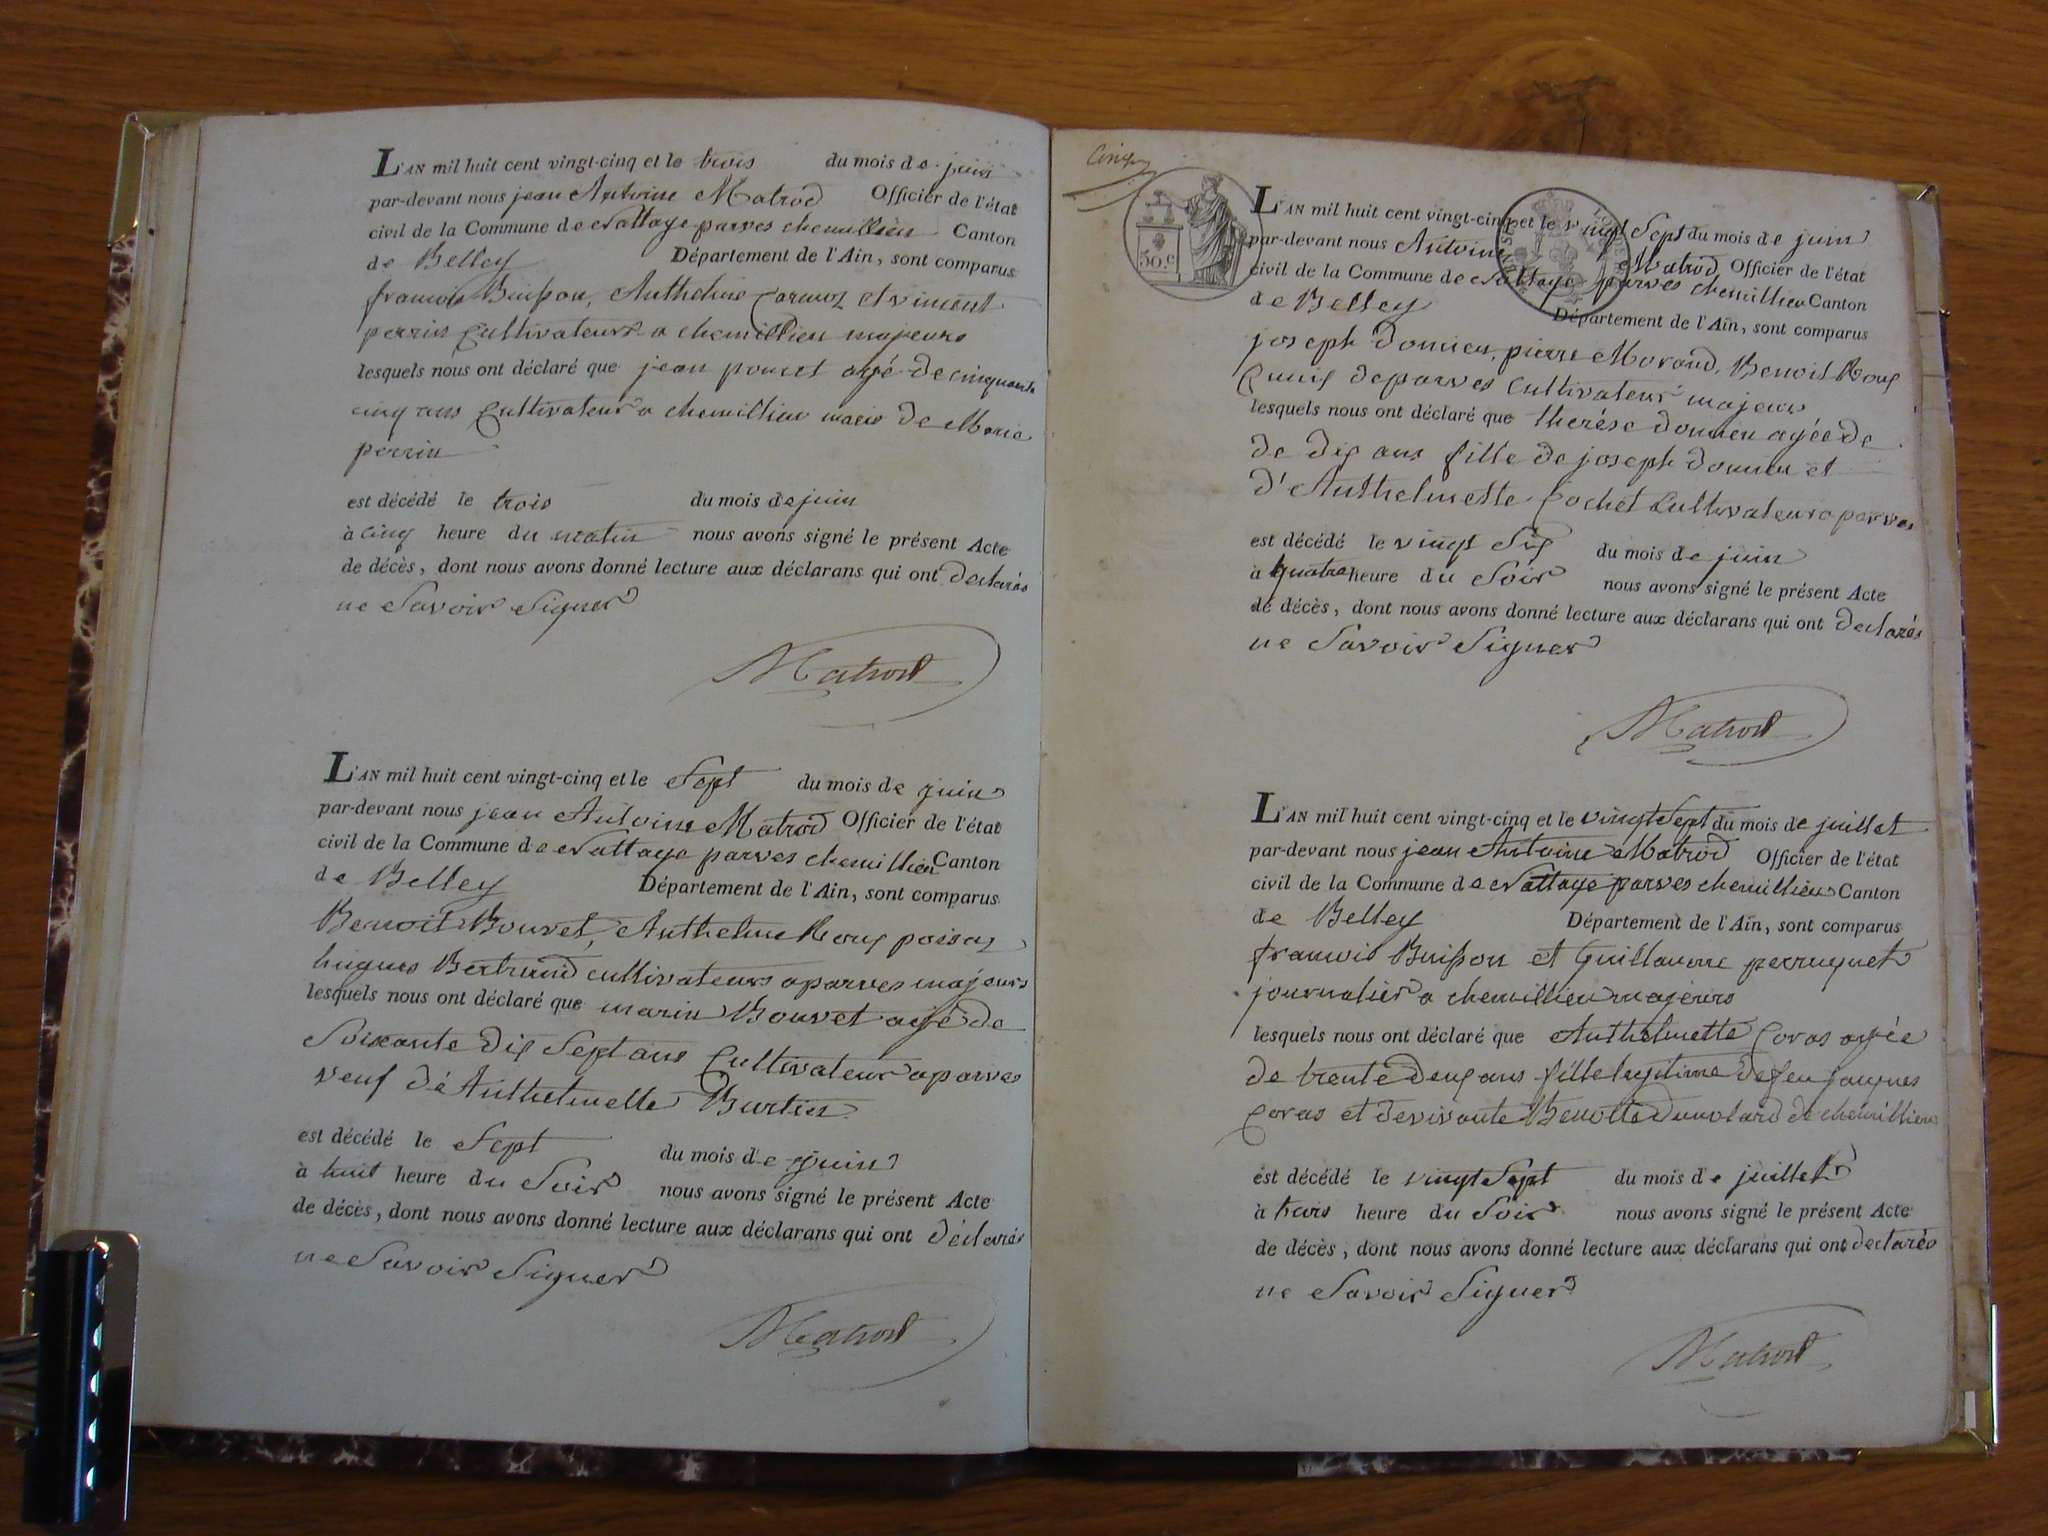 L'AN mil huit cent vingt-cinq et le trois du mois de juin
par-devant nous jean Antoine Matrod Officier de l'état
civil de la Commune de Nattage parves chemillieu Canton
de Belley Département de l'Ain, sont comparus
francois Buisson, Anthelme Carmoz et vincent
perrin Cultivateurs a chemillieu majeurs
lesquels nous ont déclaré que jean poncet agé de cinquante
cinq ans Cultivateur a chemillieu marie de Marie
perrin
est décédé le trois du mois de juin
à cinq heure du matin nous avons signé le présent Acte
de décès, dont nous avons donné lecture aux déclarans qui ont declarés
ne Savoir Signer
Matrod
L'AN mil huit cent vingt-cinq et le Sept du mois de juin
par-devant nous jean Antoine Matrod Officier de l'état
civil de la Commune de Nattage parves chemillieu Canton
de Belley Département de l'Ain, sont comparus
Benoit Bouvet, Anthelme Roux
hugues Bertrand cultivateurs a parves majeurs
lesquels nous ont déclaré que marin Bouvet agé de
Soixante dix Sept ans Cultivateur a parves
veuf de Anthelmette Burtin
est décédé le Sept du mois de juin
à huit heure du Soir nous avons signé le présent Acte
de décès, dont nous avons donné lecture aux déclarans qui ont déclarés
ne Savoir Signer
Matrod
Cinq
50.c
L'AN mil huit cent vingt-cinq et le vingt Sept du mois de juin
par-devant nous Antoine Matrod Officier de l'état
civil de la Commune de Nattage parves chemillieu Canton
de Belley Département de l'Ain, sont comparus
joseph Dumien, pierre Morand, Benoit Roux
de parves Cultivateur majeurs
lesquels nous ont déclaré que therése Dumien agée de
de dix ans fille de joseph Dumien et
d'Anthelmette Cochet Cultivateurs a parves
est décédé le vingt Six du mois de juin
à quatre heure du Soir nous avons signé le présent Acte
de décès, dont nous avons donné lecture aux déclarans qui ont declarés
ne Savoir Signer
Matrod
L'AN mil huit cent vingt-cinq et le vingt Sept du mois de juillet
par-devant nous jean Antoine Matrod Officier de l'état
civil de la Commune de Nattage parves chemillieu Canton
de Belley Département de l'Ain, sont comparus
francois Buisson et Guillaume perruquet
journalier a chemillieu majeurs
lesquels nous ont déclaré que Anthelmette Coras agée
de trente deux ans fille legitime de feu jacques
Coras et de vivante Benoite de chemillieu
est décédé le vingt Sept du mois de juillet
à trois heure du Soir nous avons signé le présent Acte
de décès, dont nous avons donné lecture aux déclarans qui ont declarés
ne Savoir Signer
Matrod